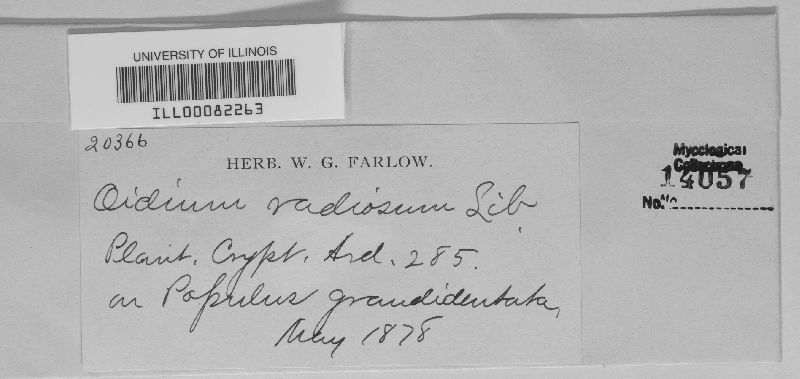 UNIVERSITY OF ILLINOIS
ILL00082263
20366
HERB. W. G. FARLOW.
Oidium radiosum Lib
Plant. Crypt. Ard. 285.
on Populus grandidentata,
May 1878
Mycological
Collections
14057
No.